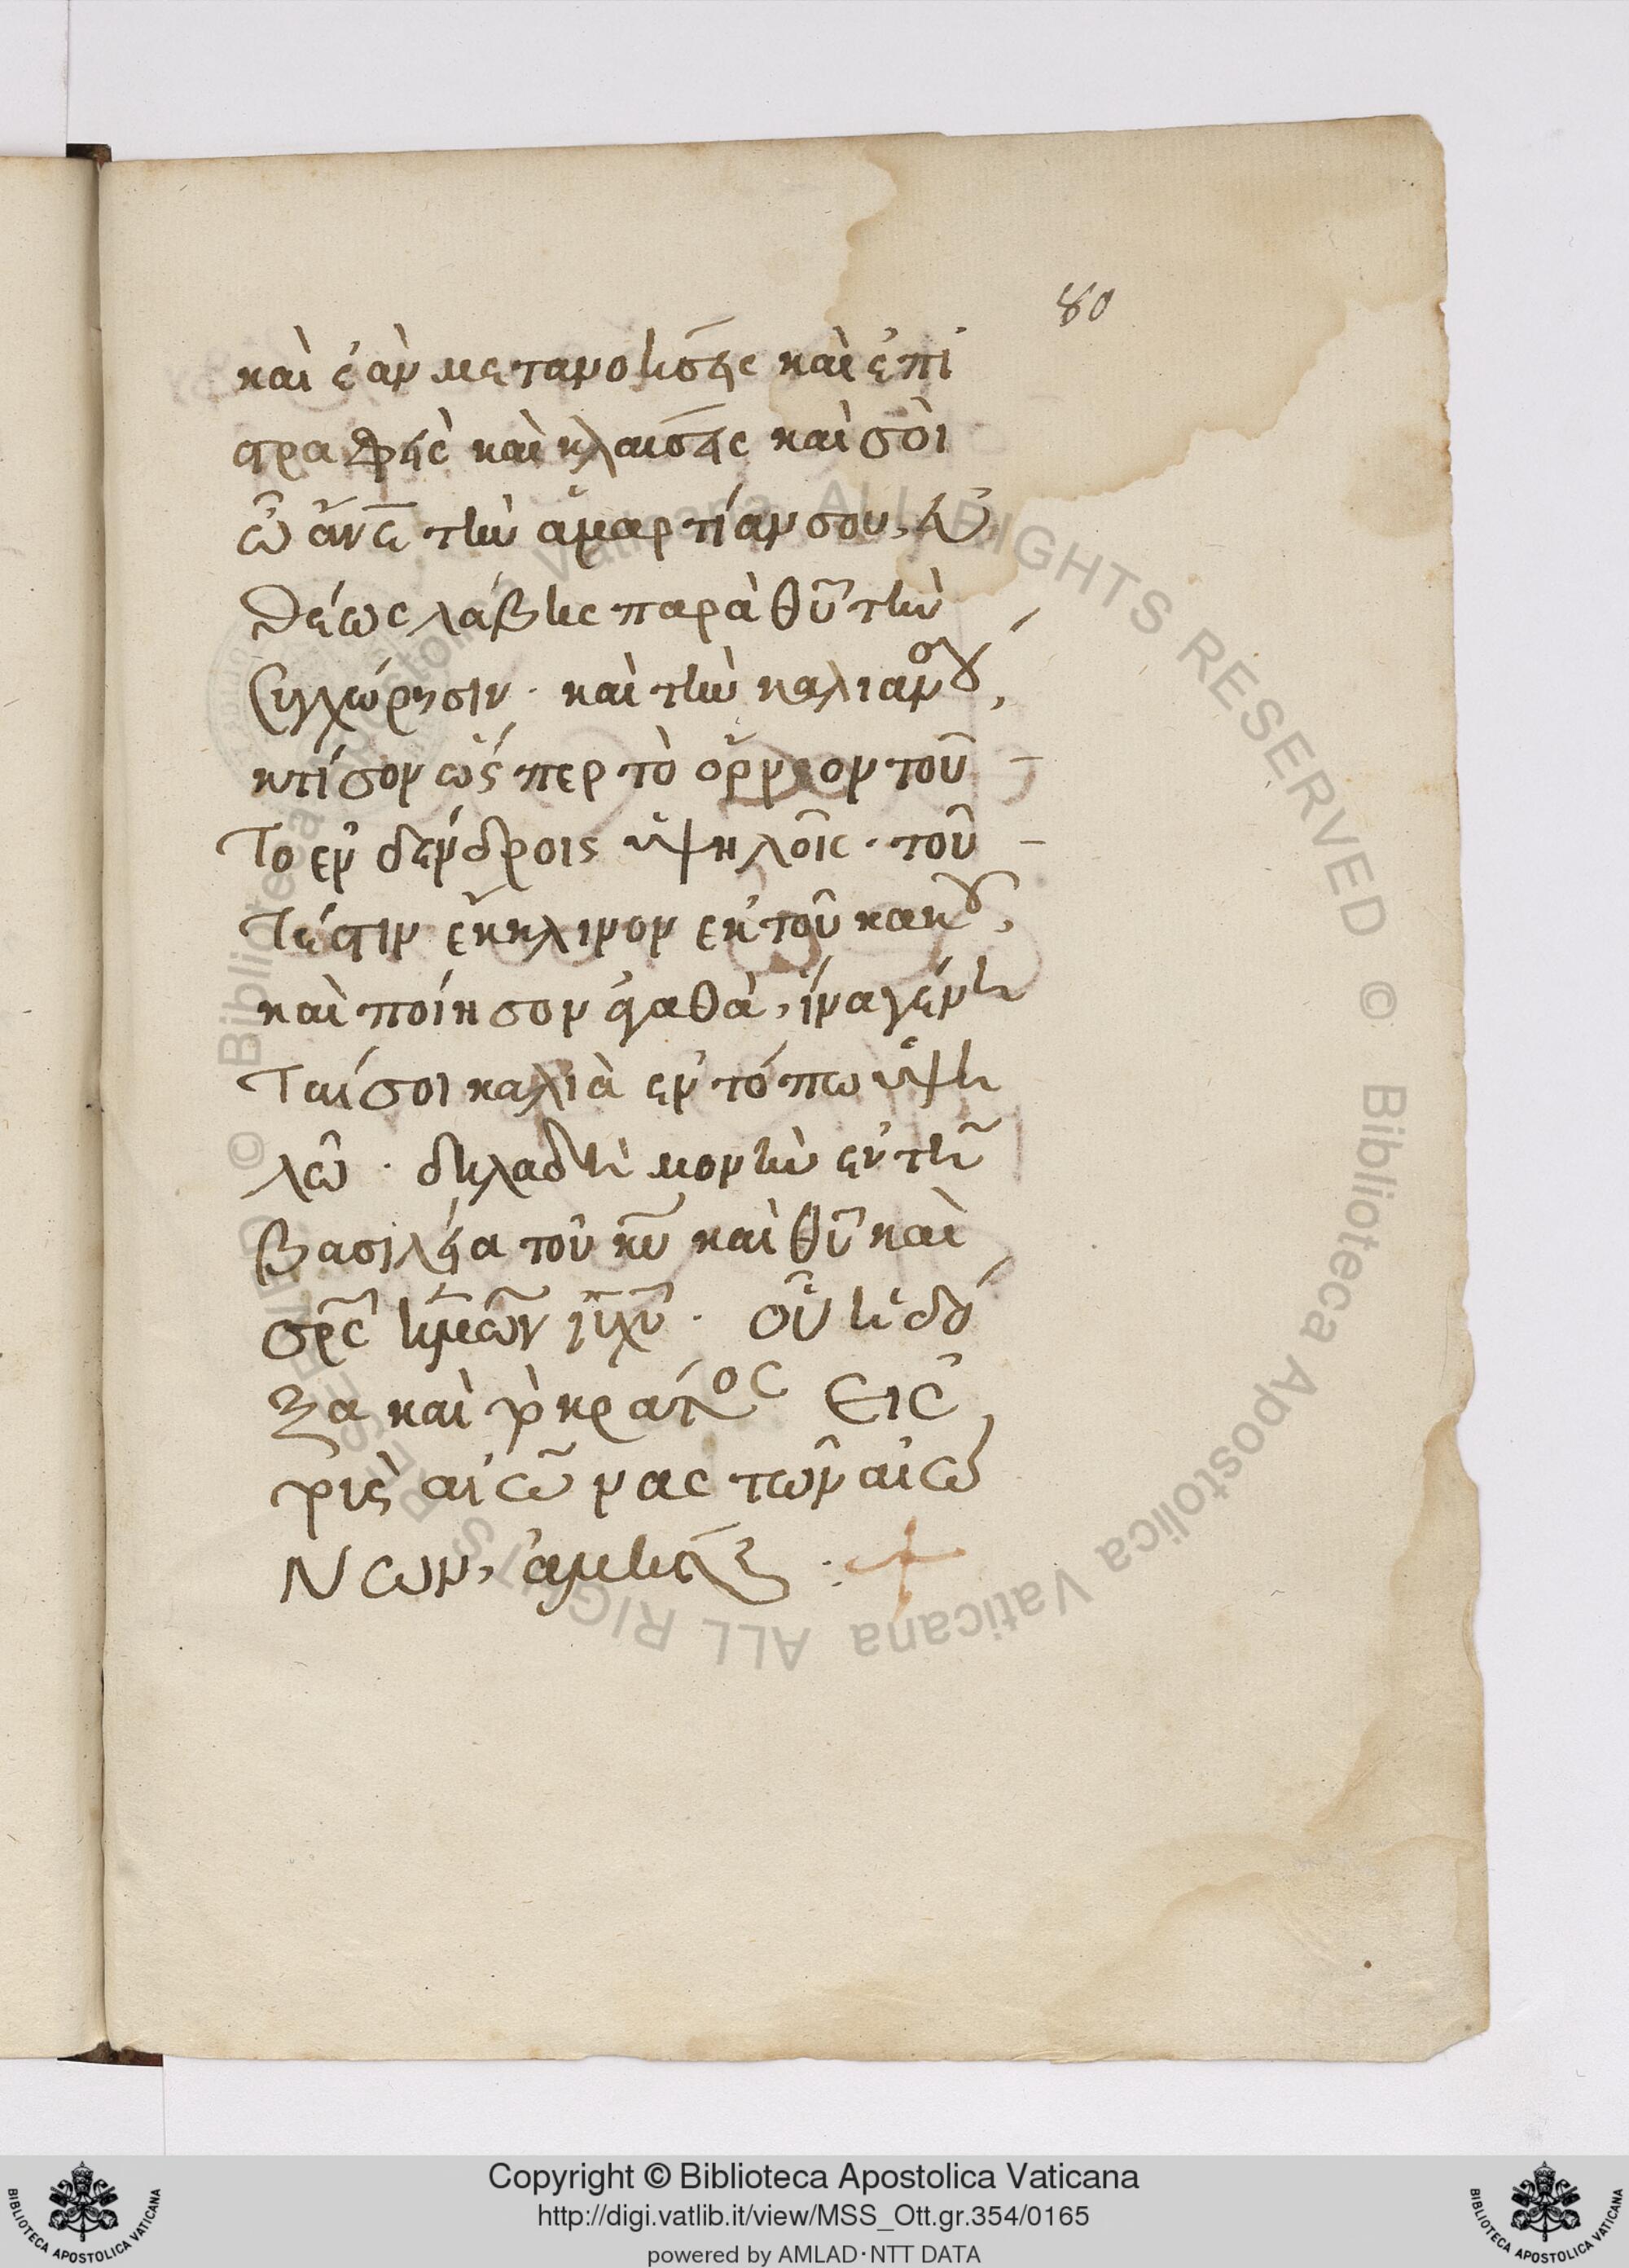 80
καὶ ἐὰν μετανοήσεις καὶ ἐπι
στραφεὶς καὶ κλαίσεις καὶ σὺ
ὦ ἄνε τὴν ἁμαρτίαν σου, εὐ
θέως λάβης παρὰ θῦ τὴν
συγχώρησιν · καὶ τὴν καλιὰν σου,
κτίσον ὥσπερ τὸ ὄρνεον τοῦ
το ἐν δένδροις ὑψηλοῖς · τοῦ
τέστιν ἔκκλινον ἐκ τοῦ κακοῦ,
καὶ ποίησον ἀγαθὰ, ἵνα γένη
ταί σοι καλιὰ ἐν τόπω ὑψη
λῶ · δηλαδὴ μονὴν ἐν τῆ
βασιλεία τοῦ κῦ καὶ θῦ καὶ
σρς ἡμῶν ἰῦ χῦ · οὗ ἡ δό
ξα καὶ τὸ κράτος εἰς
τοὺς αἰῶνας τῶν αἰώ
νων, ἀμήν :+
Copyright © Biblioteca Apostolica Vaticana
http://digi.vatlib.it/view/MSS_Ott.gr.354/0165
powered by AMLAD·NTT DATA
BIBLIOTECA APOSTOLICA VATICANA
BIBLIOTECA APOSTOLICA VATICANA
© Biblioteca Apostolica Vaticana ALL RIGHTS RESERVED © Biblioteca Apostolica Vaticana ALL RIGHTS RESERVED